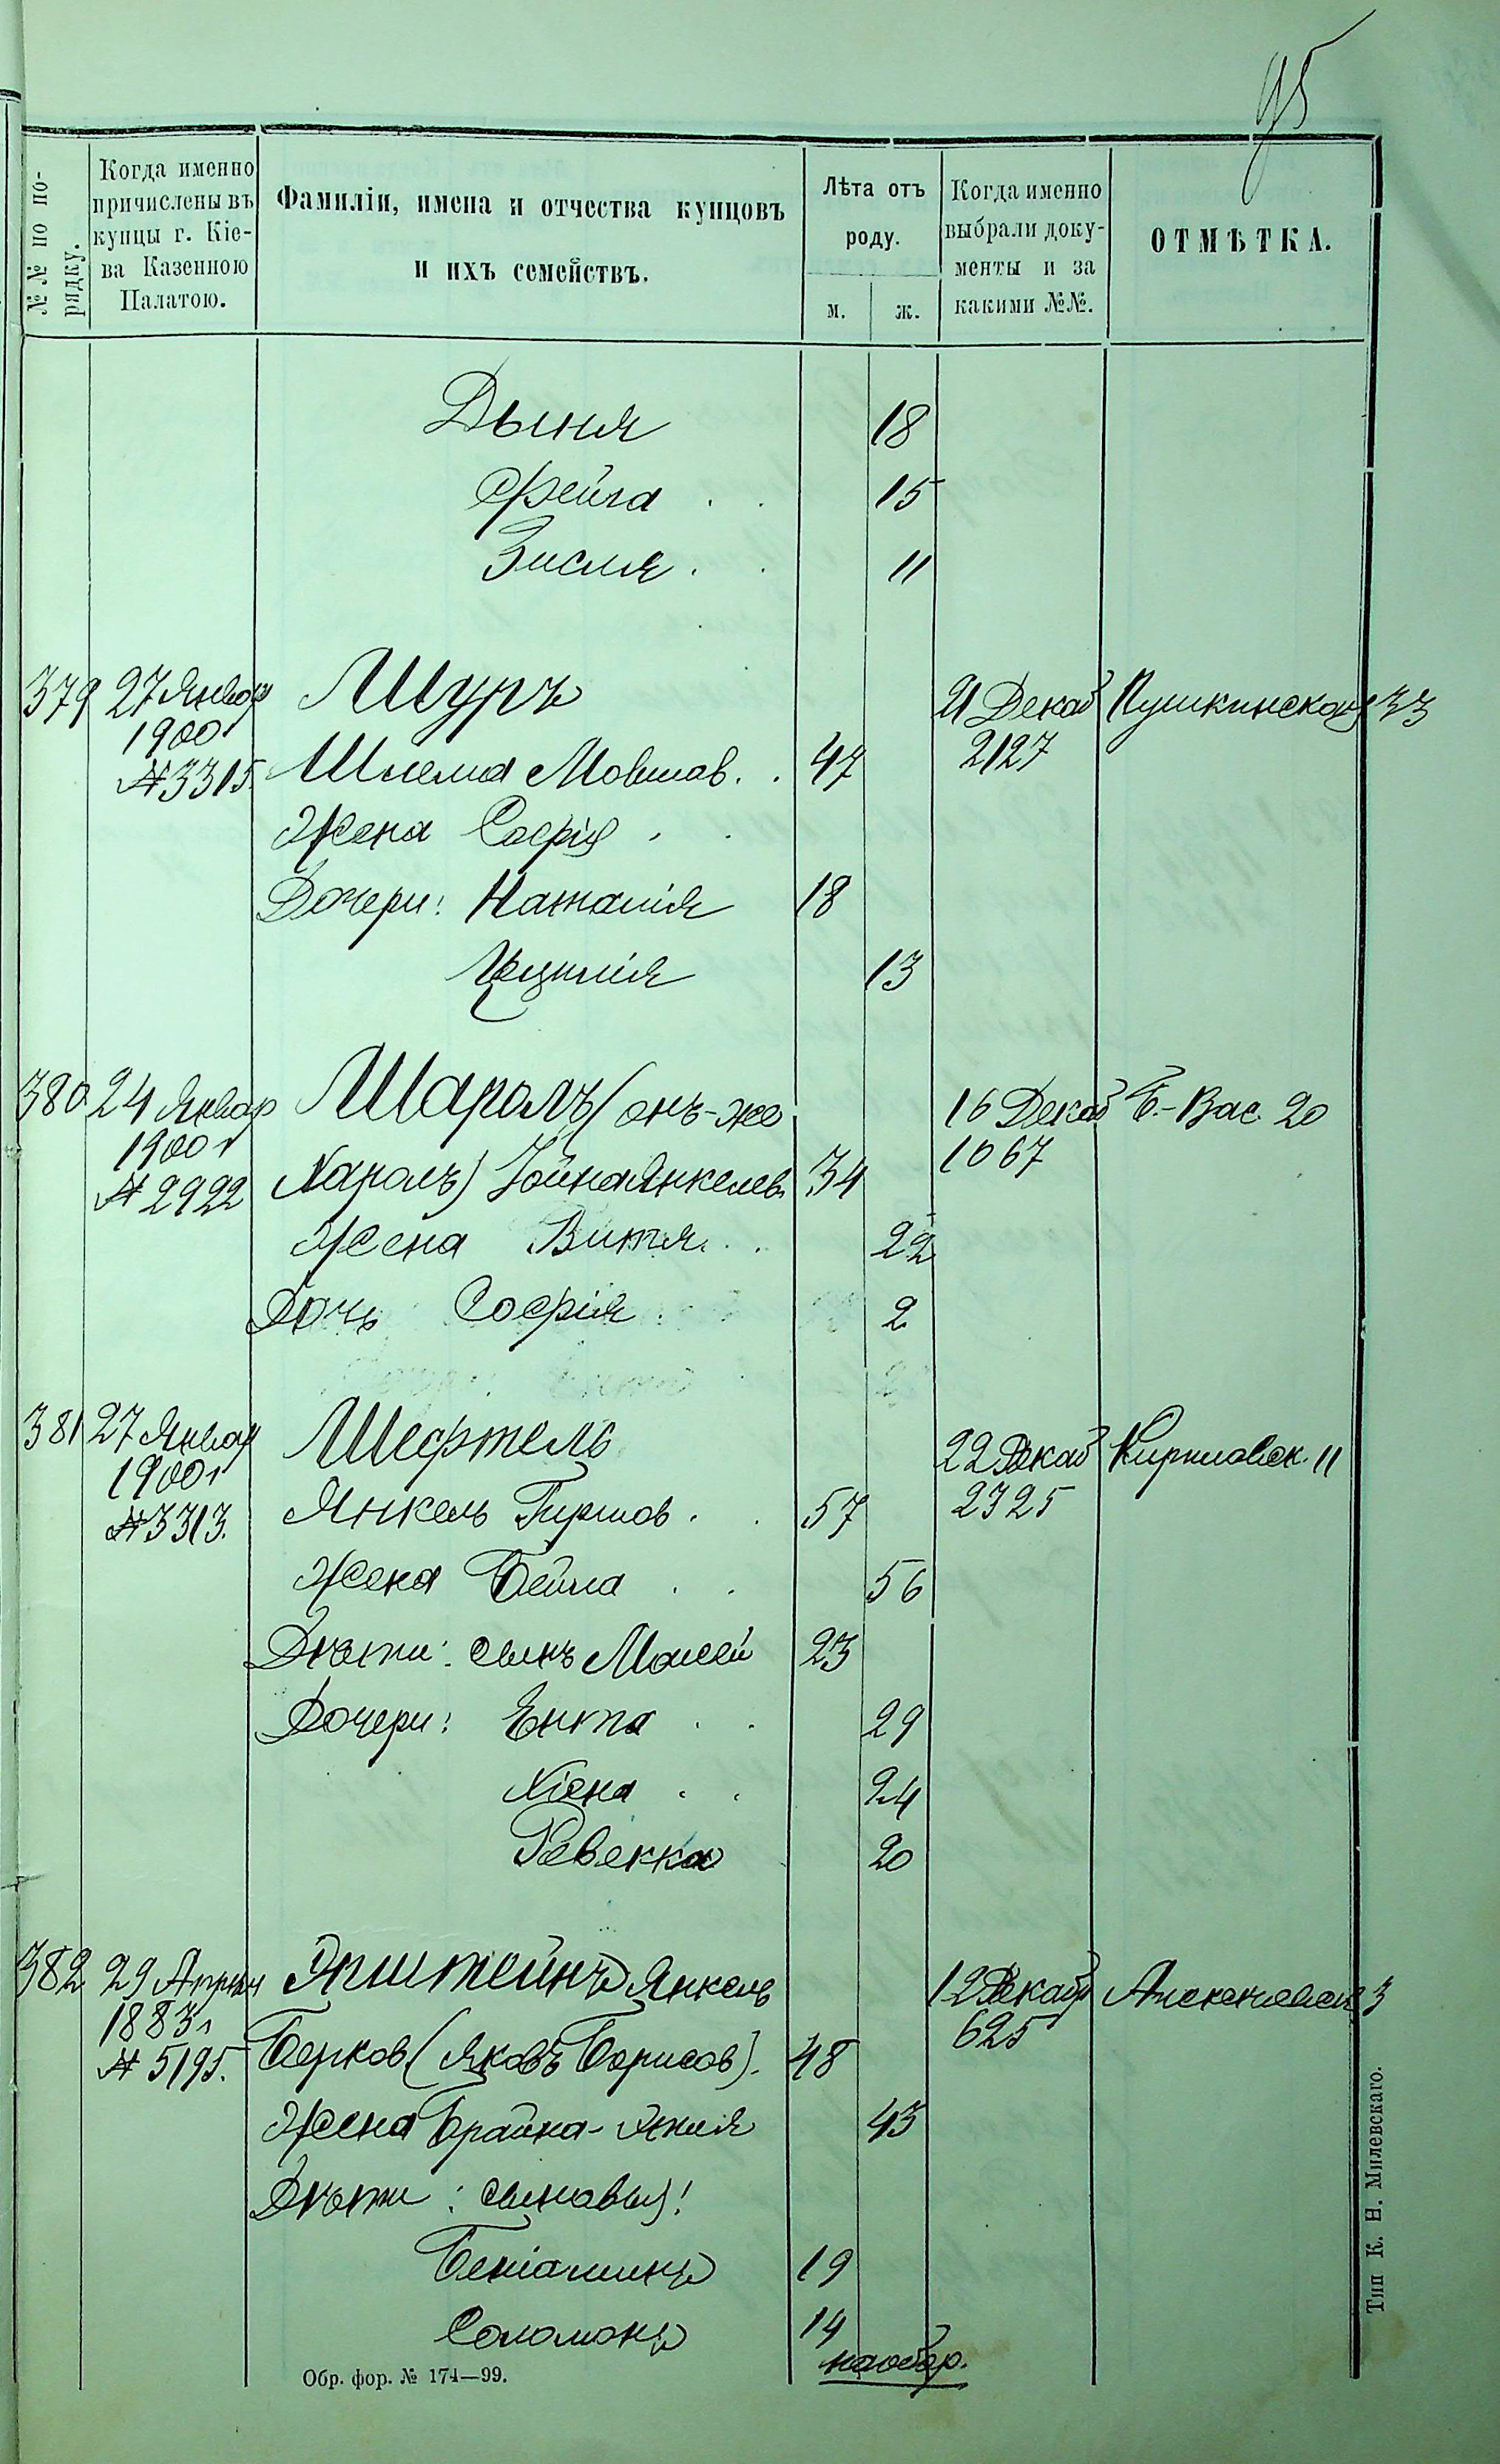 95
№№ по по-
рядку.
Когда именно
причислены въ
купцы г. Кіе-
ва Казенною
Палатою.
Фамиліи, имена и отчества купцовъ
и ихъ семействъ.
Лѣта отъ
роду.
м. ж.
Когда именно
выбрали доку-
менты и за
какими №№.
ОТМѢТКА.
Дыня 18
Фейга . . 15
Зисля . . 11
379 27 Январ Шуръ 21 Декаб Пушкинская 33
1900 2127
№ 3315. Шлема Мовшов. . 47
Жена Софія . .
Дочери: Наталія 18
Цецилія 13
380 24 Январ Шароль (онъ-же 16 Декаб Б.-Вас. 20
1900 г 1067
№ 2922 Хароль) Іойна Янкелев. 34
Жена Витя . . 22
Дочь Софія . 2
381 27 Январ Шефтель 22 Декаб Кириловск. 11
1900 г 2325
№ 3313. Янкель Гиршов . . 57
Жена Бейла . . 56
Дѣти: сынъ Моисей 23
Дочери: Ента . . 29
Хіена . . 24
Ревекка 20
382 29 Април Эпштейнъ Янкель 12 Декабр 3
1883 г 625
№ 5195. Берков (Яковъ Борисов). 48
Жена Брайна- 43
Дѣти: сыновья:
Беніаминъ 19
Соломонъ 14
наобор.
Обр. фор. № 174—99.
Тип К. Н. Милевскаго.